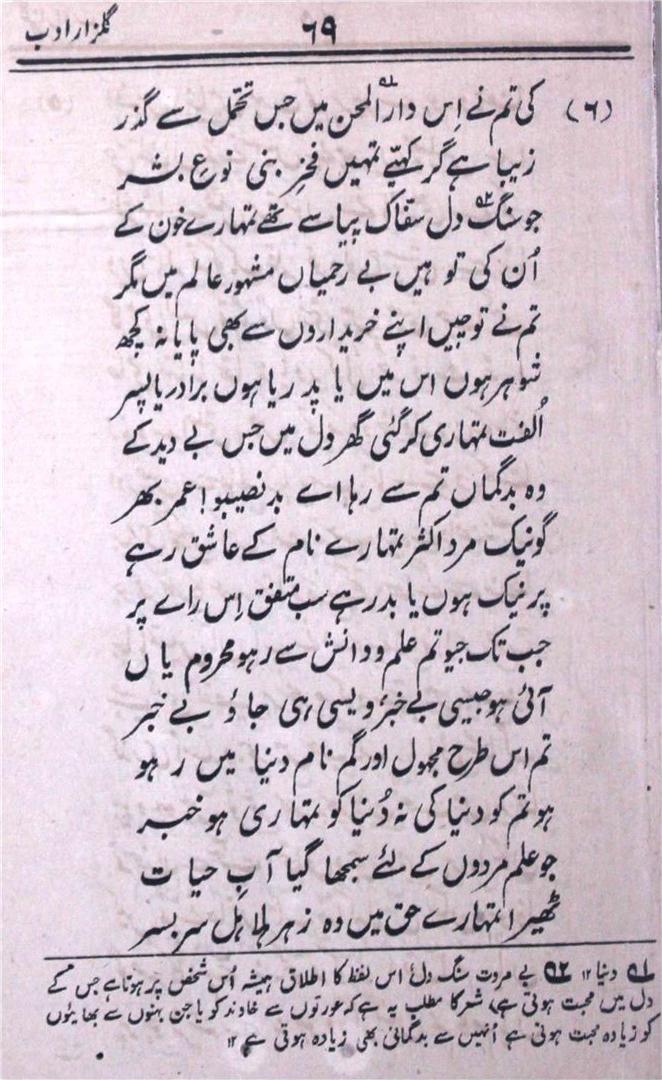 گلزار ادب ۶۹
(۶) کی تم نے اِس دار المحن میں جس تحمّل سے گذر
زیبا ہے گر کہیے تمہیں فخرِ بنی نوعِ بشر
جو سنگ دل سفّاک پیاسے تھے تمہارے خون کے
اُن کی تو ہیں بے رحمیاں مشہور عالم میں مگر
تم نے تو چین اپنے خریداروں سے بھی پایا نہ کچھ
شوہر ہوں اس میں یا پدر یا ہوں برادر یا پسر
اُلفت تمہاری کر گئی گھر دل میں جس بے دید کے
وہ بدگماں تم سے رہا اے بدنصیبو! عمر بھر
گو نیک مرد اکثر تمہارے نام کے عاشق رہے
پر نیک ہوں یا بد رہے سب متفق اِس رائے پر
جب تک جیو تم علم و دانش سے رہو محروم یاں
آئی ہو جیسی بے خبر ویسی ہی جاؤ بے خبر
تم اس طرح مجہول اور گم نام دنیا میں رہو
ہو تم کو دنیا کی نہ دُنیا کو تمہاری ہو خبر
جو علم مردوں کے لئے سمجھا گیا آبِ حیات
ٹھیرا تمہارے حق میں وہ زہرِ ہلاہل سر بسر
۵۱ دنیا ۱۲ ۵۲ بے مروت سنگ دل۔ اس لفظ کا اطلاق ہمیشہ اُس شخص پر ہوتا ہے جس کے
دل میں محبت ہوتی ہے، شعر کا مطلب یہ ہے کہ عورتوں سے خاوند کو یا جن بہنوں سے بھائیوں
کو زیادہ محبت ہوتی ہے اُنہیں سے بدگمانی بھی زیادہ ہوتی ہے ۱۲